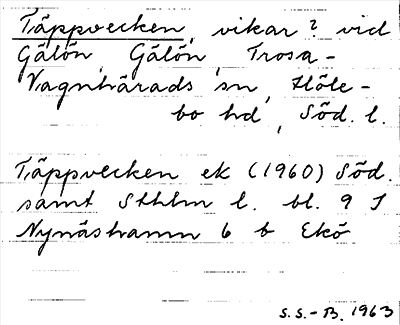 Täppvecken, vikar? vid
Gälön, Gälön, Trosa-
Vagnhärads sn, Höle-
bo hd, Söd. l.
Täppvecken ek (1960) Söd.
samt Sthlm l. bl. 9 I
Nynäshamn 6 b Ekö
S.S.-B. 1963